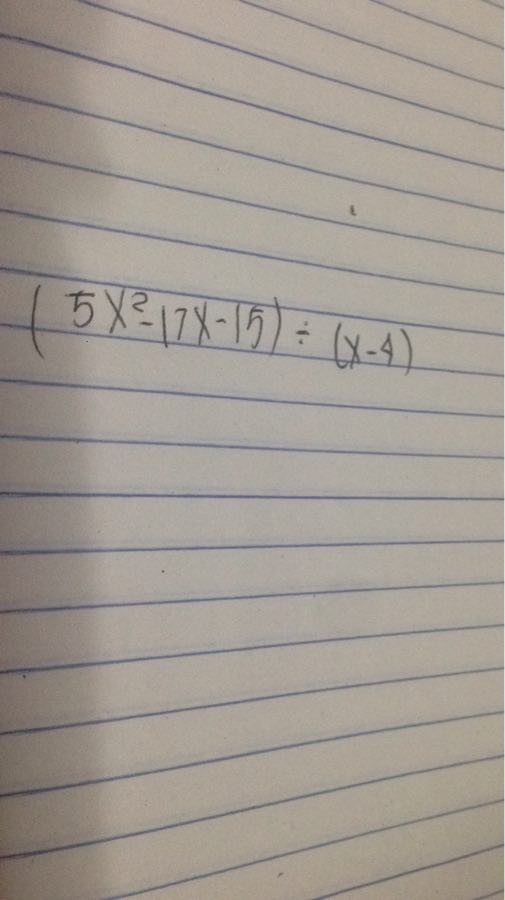 (5x²-17x-15) ÷ (x-4)